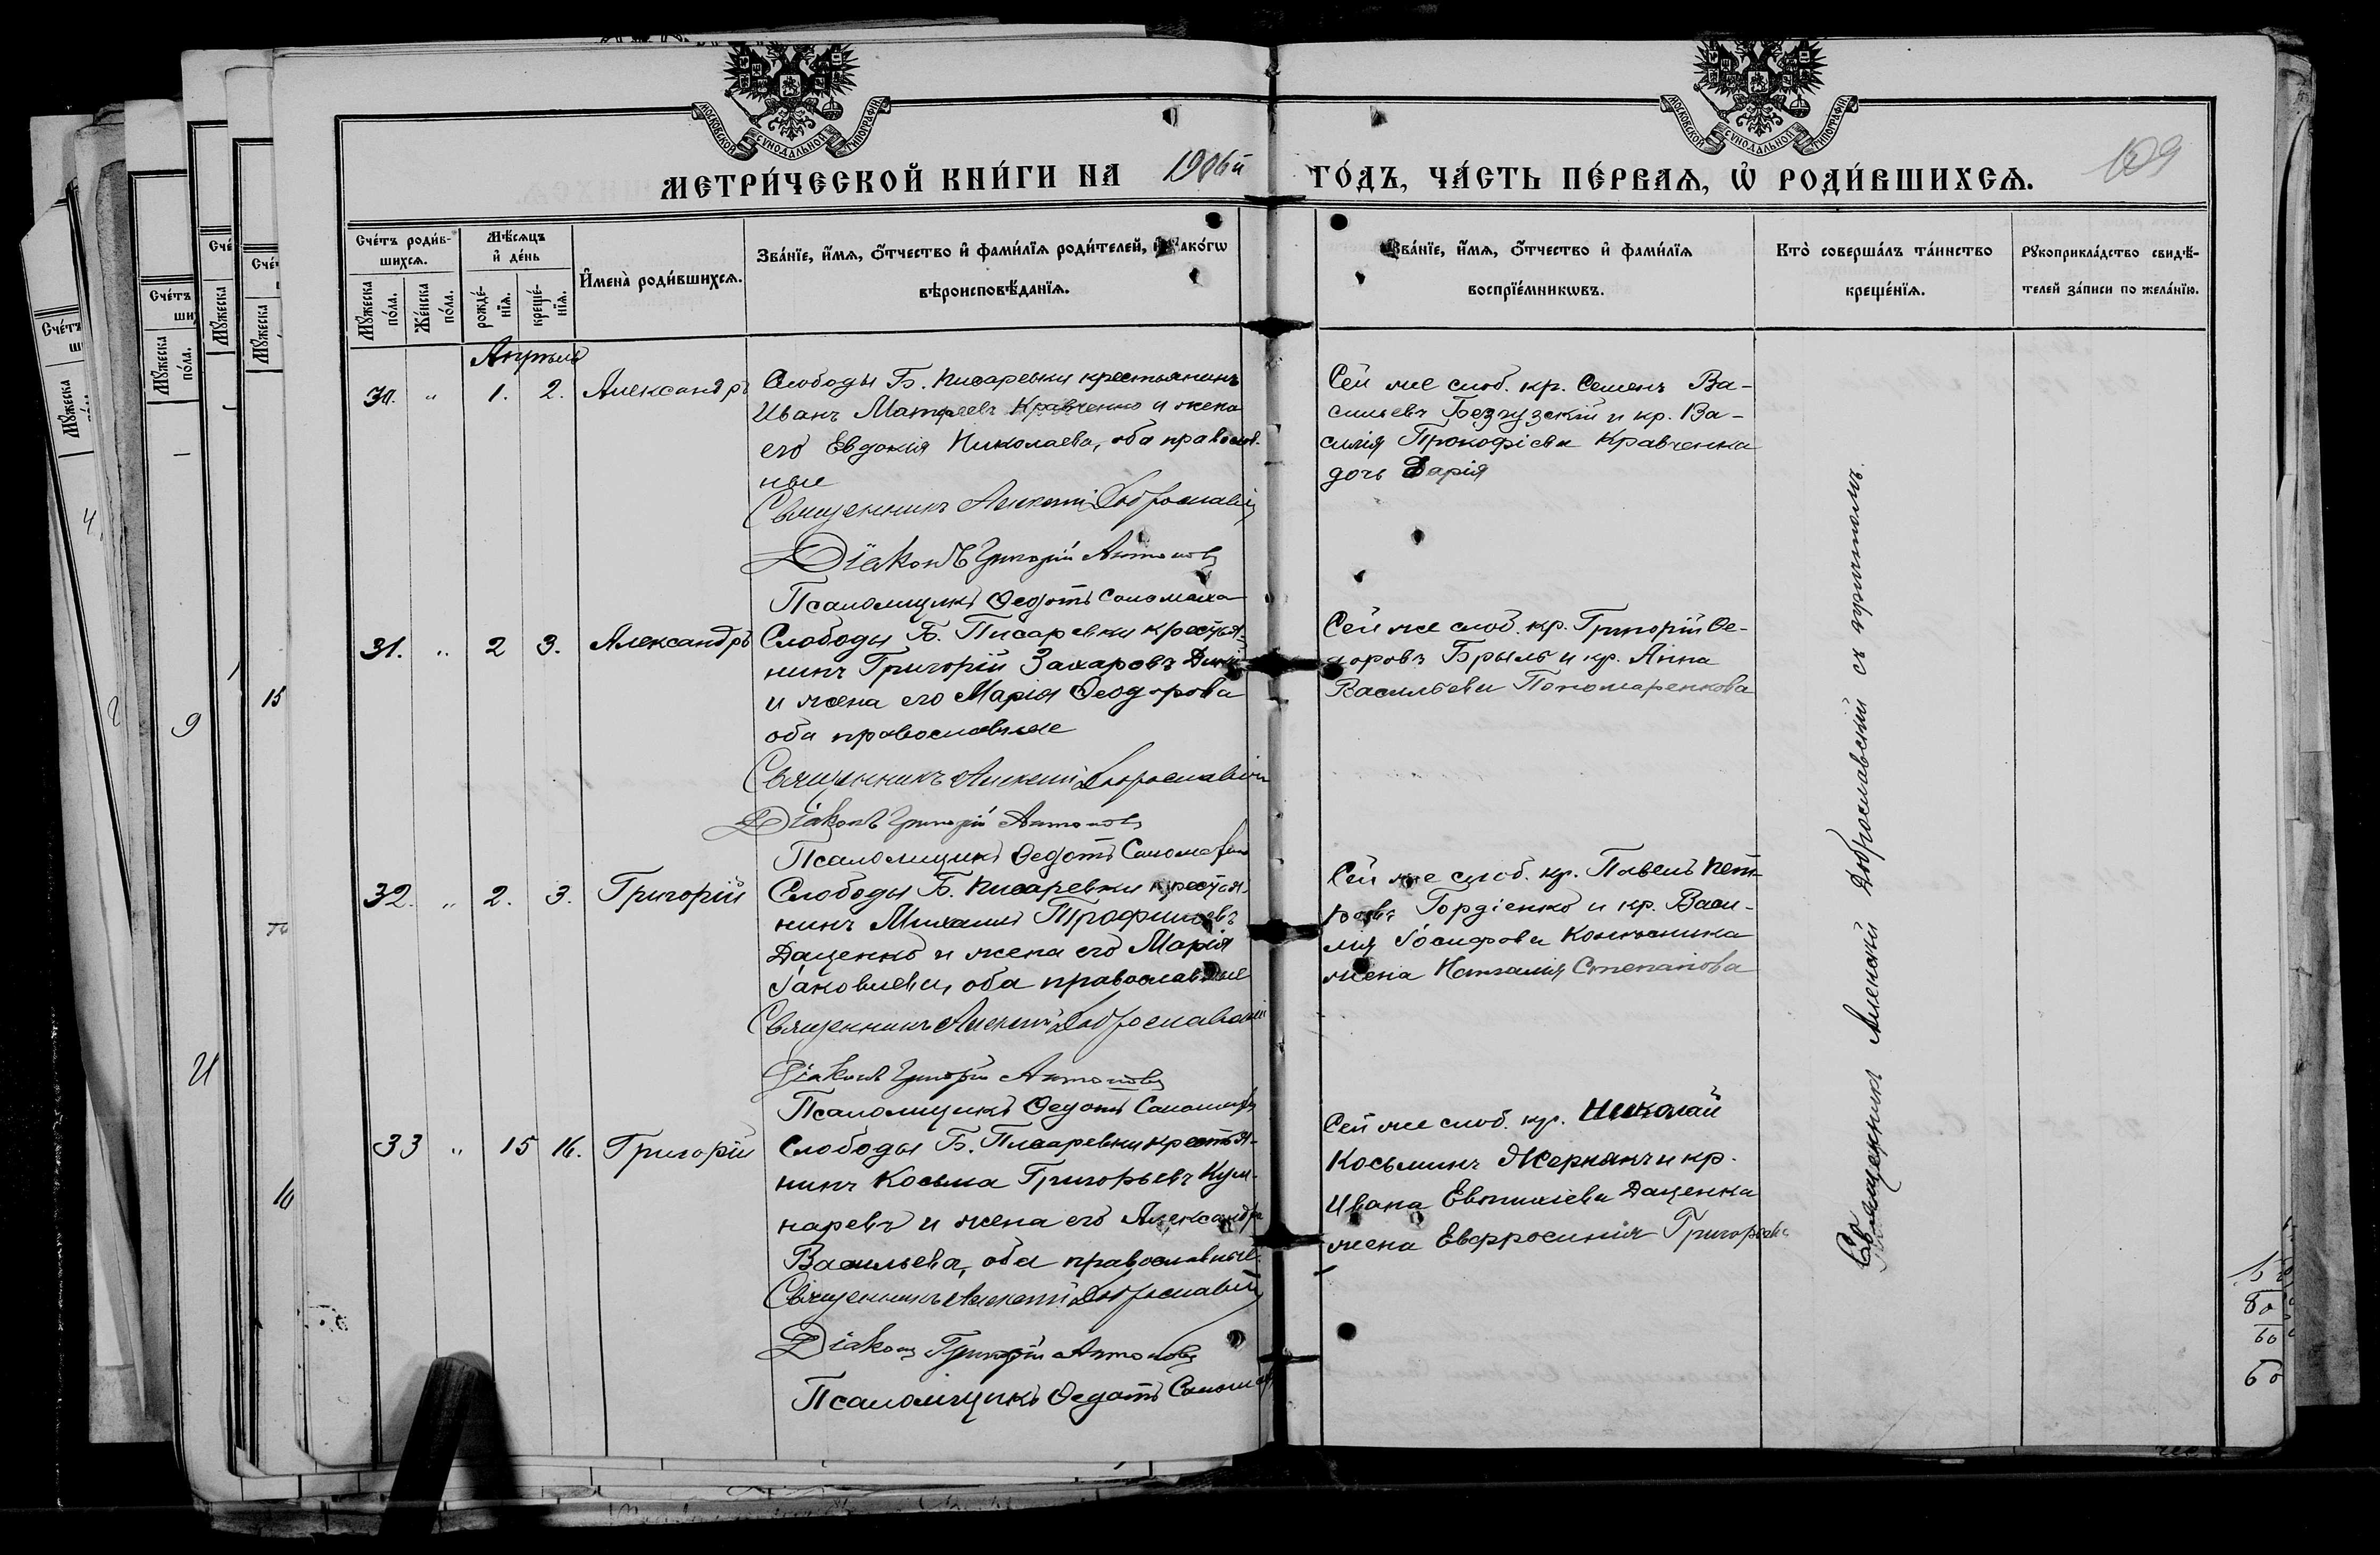 МОСКОВСКОЙ СѴНОДАЛЬНОЙ ТИПОГРАФІИ
МОСКОВСКОЙ СѴНОДАЛЬНОЙ ТИПОГРАФІИ
МЕТРИ́ЧЕСКОЙ КНИ́ГИ НА 1906й ГО́ДЪ, ЧА́СТЬ ПЕ́РВАѦ, Ѡ҆ РОДИ́ВШИХСѦ.
109
Сче́тъ роди́в-
шихсѧ.
Мꙋ́жеска по́ла.
Же́нска по́ла.
Мѣ́сѧцъ
и҆ де́нь
рожде́-
нїѧ.
креще́-
нїѧ.
И҆мена̀ роди́вшихсѧ.
Зва́нїе, и҆́мѧ, ѻ҆́тчество и҆ фами́лїѧ роди́телей, и҆ како́гѡ
вѣроисповѣ́данїѧ.
Зва́нїе, и҆́мѧ, ѻ҆́тчество и҆ фами́лїѧ
воспрїе́мникѡвъ.
Кто̀ соверша́лъ та́инство
креще́нїѧ.
Рꙋкоприкла́дство свидѣ́-
телей за́писи по жела́нїю.
Апрѣль
30. " 1. 2. Александръ
Слободы Б. Писаревки крестьянинъ
Иванъ Матфеевъ Кравченко и жена
его Евдокія Николаева, оба православ-
ные
Священникъ Алексій Доброславскій
Діаконъ Григорій Антоновъ
Псаломщикъ Ѳедотъ Соломаха
Сей же слоб. кр. Семенъ Ва-
сильевъ Безгузскій и кр. Ва-
силія Прокофіева Кравченка
дочь Дарія
31. " 2 3. Александръ
Слободы Б. Писаревки крестья-
нинъ Григорій Захаровъ
и жена его Марія Ѳеодорова
оба православные
Священникъ Алексій Доброславскій
Діаконъ Григорій Антоновъ
Псаломщикъ Ѳедотъ Соломаха
Сей же слоб. кр. Григорій Ѳе-
доровъ Брыль и кр. Анна
Васильева Пономаренкова
32. " 2. 3. Григорій
Слободы Б. Писаревки крестья-
нинъ Михаилъ Трофимовъ
Даценко и жена его Марія
Іаковлева, оба православные
Священникъ Алексій Доброславскій
Діаконъ Григорій Антоновъ
Псаломщикъ Ѳедотъ Соломаха
Сей же слоб. кр. Павелъ Пет-
ровъ Гордіенко и кр. Васи-
лія Іосифова Колесника
жена Наталія Степанова
33 " 15 16. Григорій
Слободы Б. Писаревки крестья-
нинъ Косьма Григорьевъ Куш-
наревъ и жена его Александра
Васильева, оба православные.
Священникъ Алексій Доброславскій
Діаконъ Григорій Антоновъ
Псаломщикъ Ѳедотъ Соломаха
Сей же слоб. кр. Николай
Косьминъ и кр.
Ивана Евтихіева Даценка
жена Евфросинія Григорьева
Священникъ Алексій Доброславскій съ причтомъ.